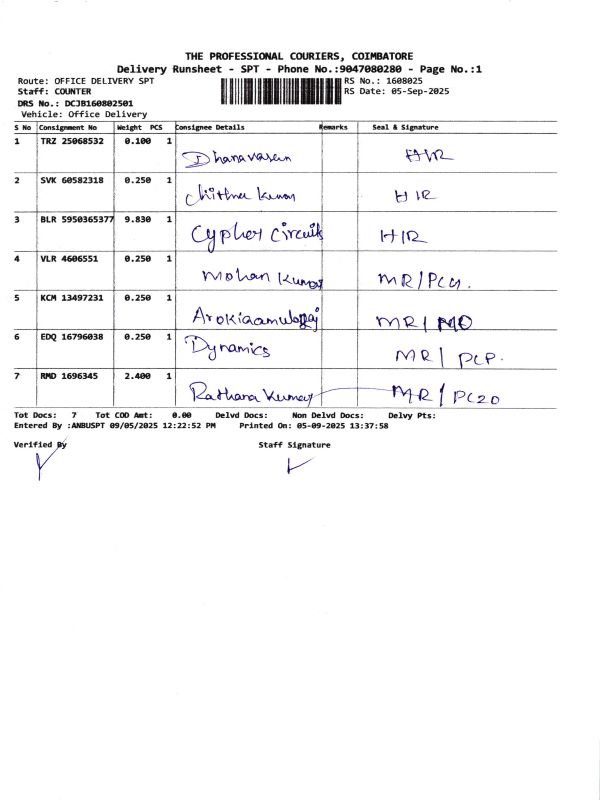 THE PROFESSIONAL COURIERS, COIMBATORE
Delivery Runsheet - SPT - Phone No.:9047080280 - Page No.:1
Route: OFFICE DELIVERY SPT RS No.: 1608025
Staff: COUNTER RS Date: 05-Sep-2025
DRS No.: DCJB160802501
Vehicle: Office Delivery
S No Consignment No Weight PCS Consignee Details Remarks Seal & Signature
1 TRZ 25068532 0.100 1 Dhanavasan HIR
2 SVK 60582318 0.250 1 Chithra Kumar HIR
3 BLR 5950365377 9.830 1 Cypher Circuits HIR
4 VLR 4606551 0.250 1 Mohan Kumar MR/PC4.
5 KCM 13497231 0.250 1 MR/MO
6 EDQ 16796038 0.250 1 Dynamics MR/PCP.
7 RMD 1696345 2.400 1 Rathana Kumar MR/PC20
Tot Docs: 7 Tot COD Amt: 0.00 Delvd Docs: Non Delvd Docs: Delvy Pts:
Entered By :ANBUSPT 09/05/2025 12:22:52 PM Printed On: 05-09-2025 13:37:58
Verified By Staff Signature